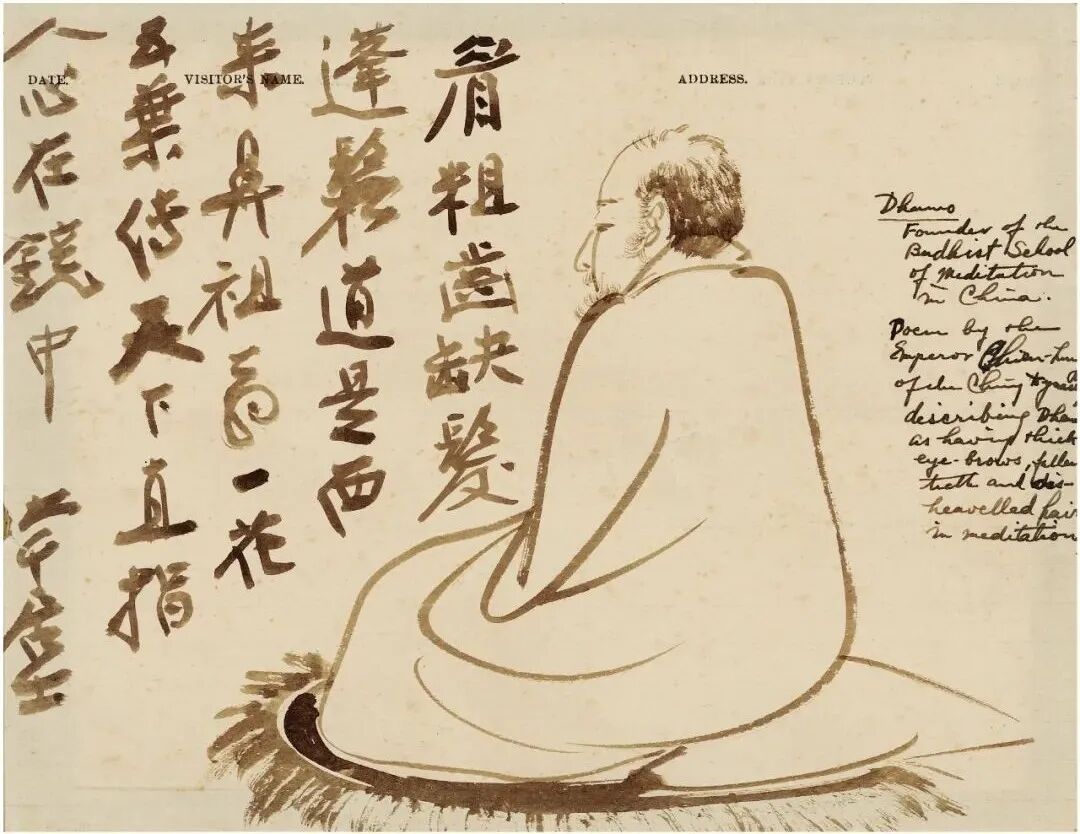 DATE. VISITOR'S NAME. ADDRESS.
眉粗齒缺髮
蓬鬆道是西
来鼻祖翁一花
五葉傳天下直指
人心在鏡中
居士
Dhamo
Founder of the
Budhist School
of Meditation
in China.
Poem by the
Emperor Chien-lun
of the Ching
describing Dha
as having thick
eye-brows, fallen
teeth and dis-
heavelled hair
in meditation